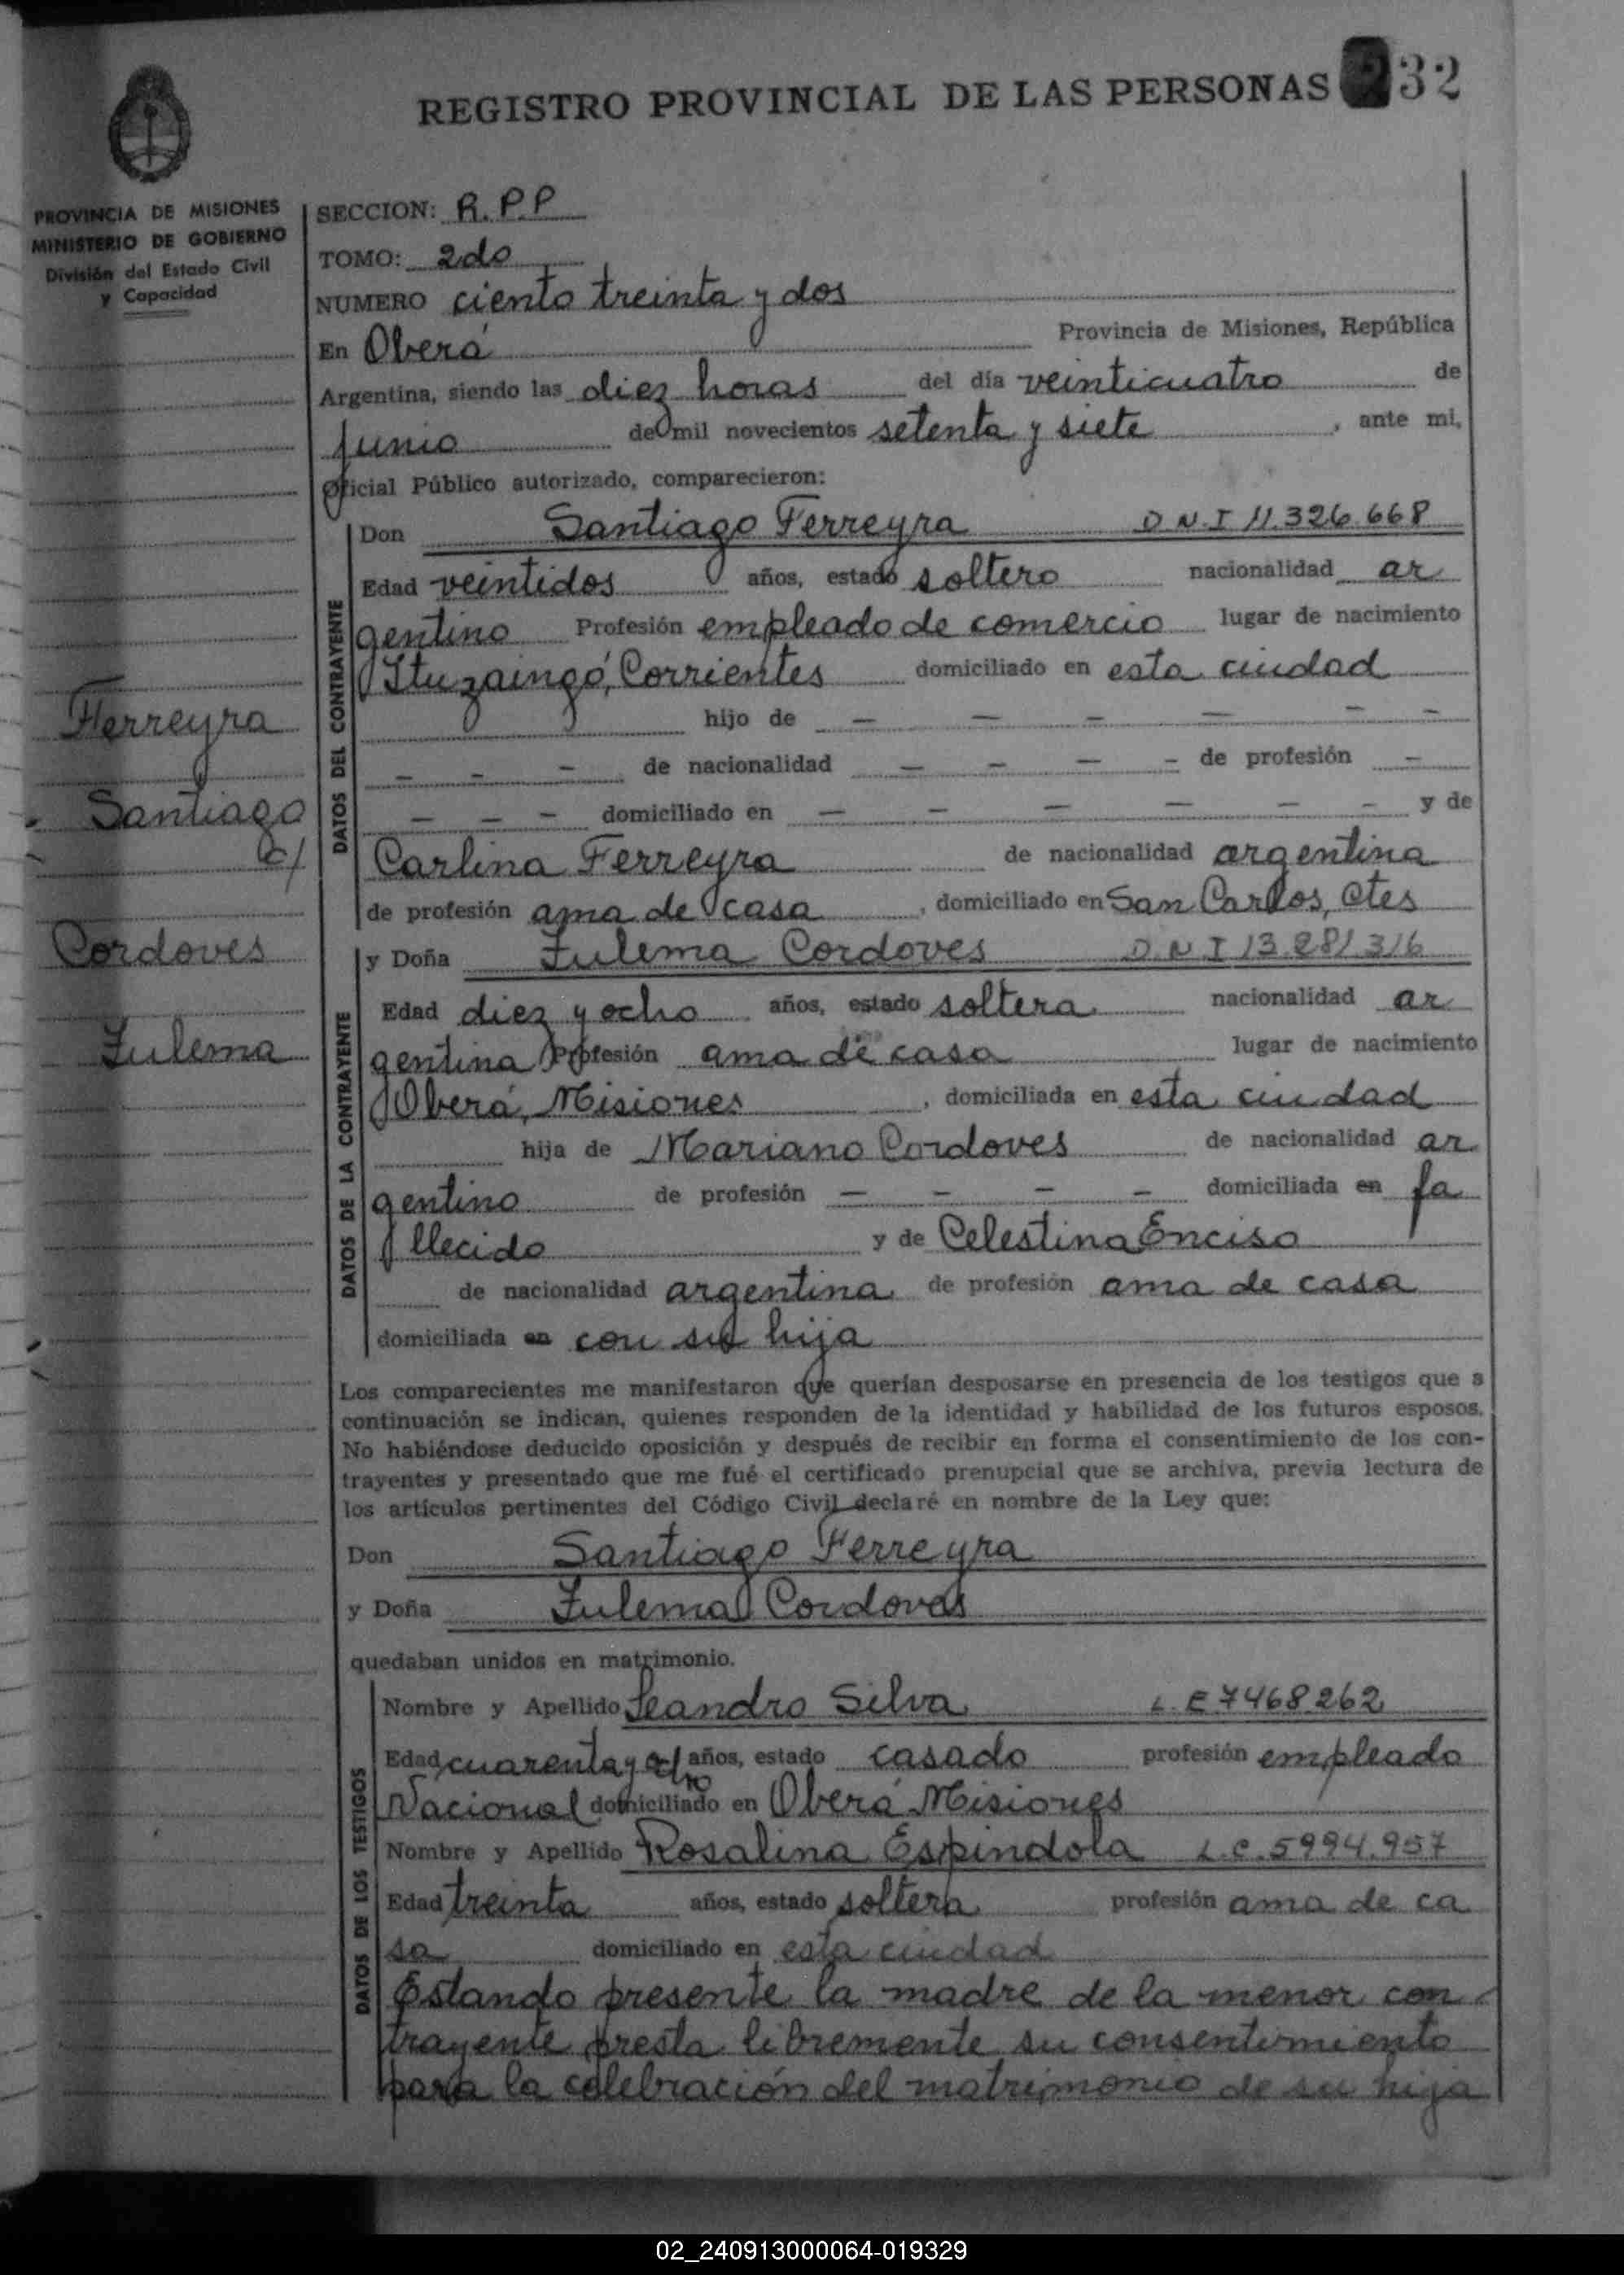 REGISTRO PROVINCIAL DE LAS PERSONAS 32
PROVINCIA DE MISIONES
MINISTERIO DE GOBIERNO
División del Estado Civil
y Capacidad
SECCION: R.P.P
TOMO: 2do
NUMERO ciento treinta y dos
En Oberá Provincia de Misiones, República
Argentina, siendo las diez horas del día veinticuatro de
junio de mil novecientos setenta y siete, ante mi,
Oficial Público autorizado, comparecieron:
DATOS DEL CONTRAYENTE
Don Santiago Ferreyra D.N.I 11.326.668
Edad veintidos años, estado soltero nacionalidad ar
gentino Profesión empleado de comercio lugar de nacimiento
Ituzaingó, Corrientes domiciliado en esta ciudad
hijo de — — — — — —
— — — de nacionalidad — — — — de profesión —
— — — domiciliado en — — — — — — y de
Carlina Ferreyra de nacionalidad argentina
de profesión ama de casa, domiciliado en San Carlos, Ctes
Ferreyra
Santiago
c/
Cordoves
Zulema
DATOS DE LA CONTRAYENTE
y Doña Zulema Cordoves D.N.I 13.281.316
Edad diez y ocho años, estado soltera nacionalidad ar
gentina Profesión ama de casa lugar de nacimiento
Oberá, Misiones, domiciliada en esta ciudad
hija de Mariano Cordoves de nacionalidad ar
gentino de profesión — — — — domiciliada en fa
llecido y de Celestina Enciso
de nacionalidad argentina de profesión ama de casa
domiciliada en con su hija
Los comparecientes me manifestaron que querían desposarse en presencia de los testigos que a
continuación se indican, quienes responden de la identidad y habilidad de los futuros esposos.
No habiéndose deducido oposición y después de recibir en forma el consentimiento de los con-
trayentes y presentado que me fué el certificado prenupcial que se archiva, previa lectura de
los artículos pertinentes del Código Civil declaré en nombre de la Ley que:
Don Santiago Ferreyra
y Doña Zulema Cordoves
quedaban unidos en matrimonio.
DATOS DE LOS TESTIGOS
Nombre y Apellido Leandro Silva L.E 7468.262
Edad cuarenta y ocho años, estado casado profesión empleado
Nacional domiciliado en Oberá Misiones
Nombre y Apellido Rosalina Espindola L.C. 5994.957
Edad treinta años, estado soltera profesión ama de ca
sa domiciliado en esta ciudad
Estando presente la madre de la menor con
trayente presta libremente su consentimiento
para la celebración del matrimonio de su hija
02_240913000064-019329